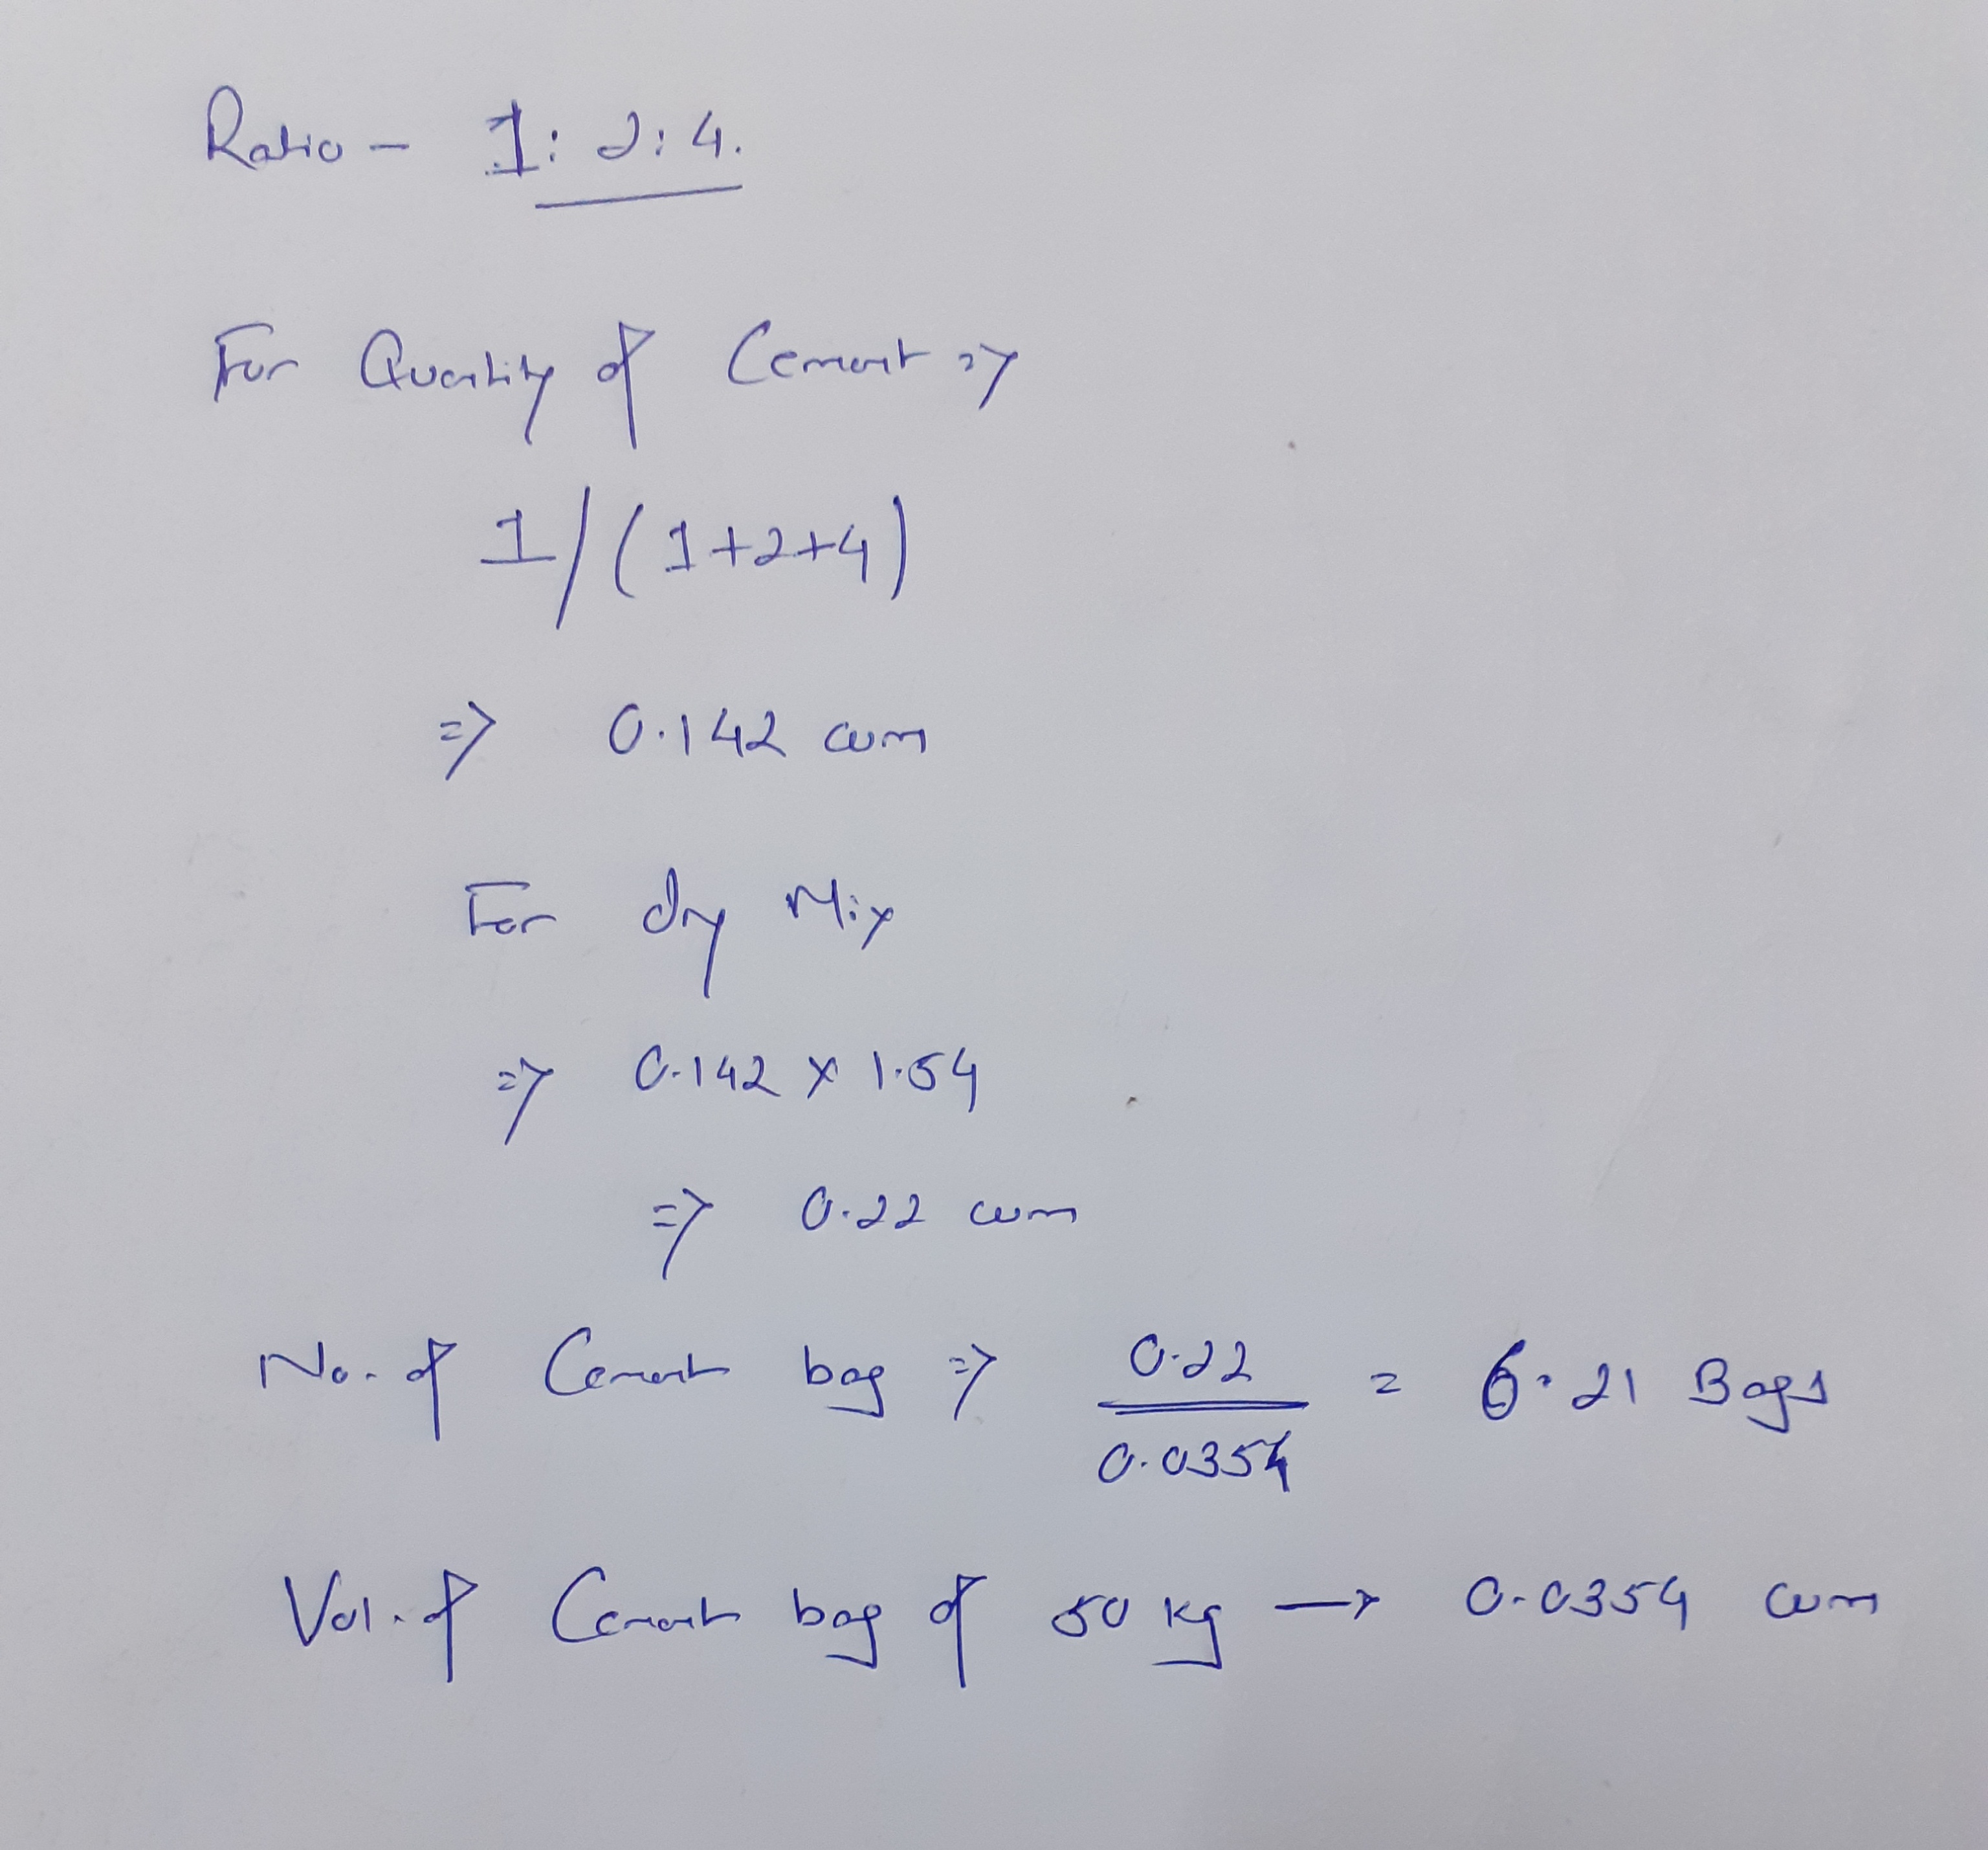 Ratio - 1:2:4.
For Quantity of Cement =>
1/(1+2+4)
=> 0.142 cum
For dry Mix
=> 0.142 x 1.54
=> 0.22 cum
No. of Cement bag => 0.22 / 0.0354 = 6.21 Bags
Vol. of Cement bag of 50 kg → 0.0354 cum